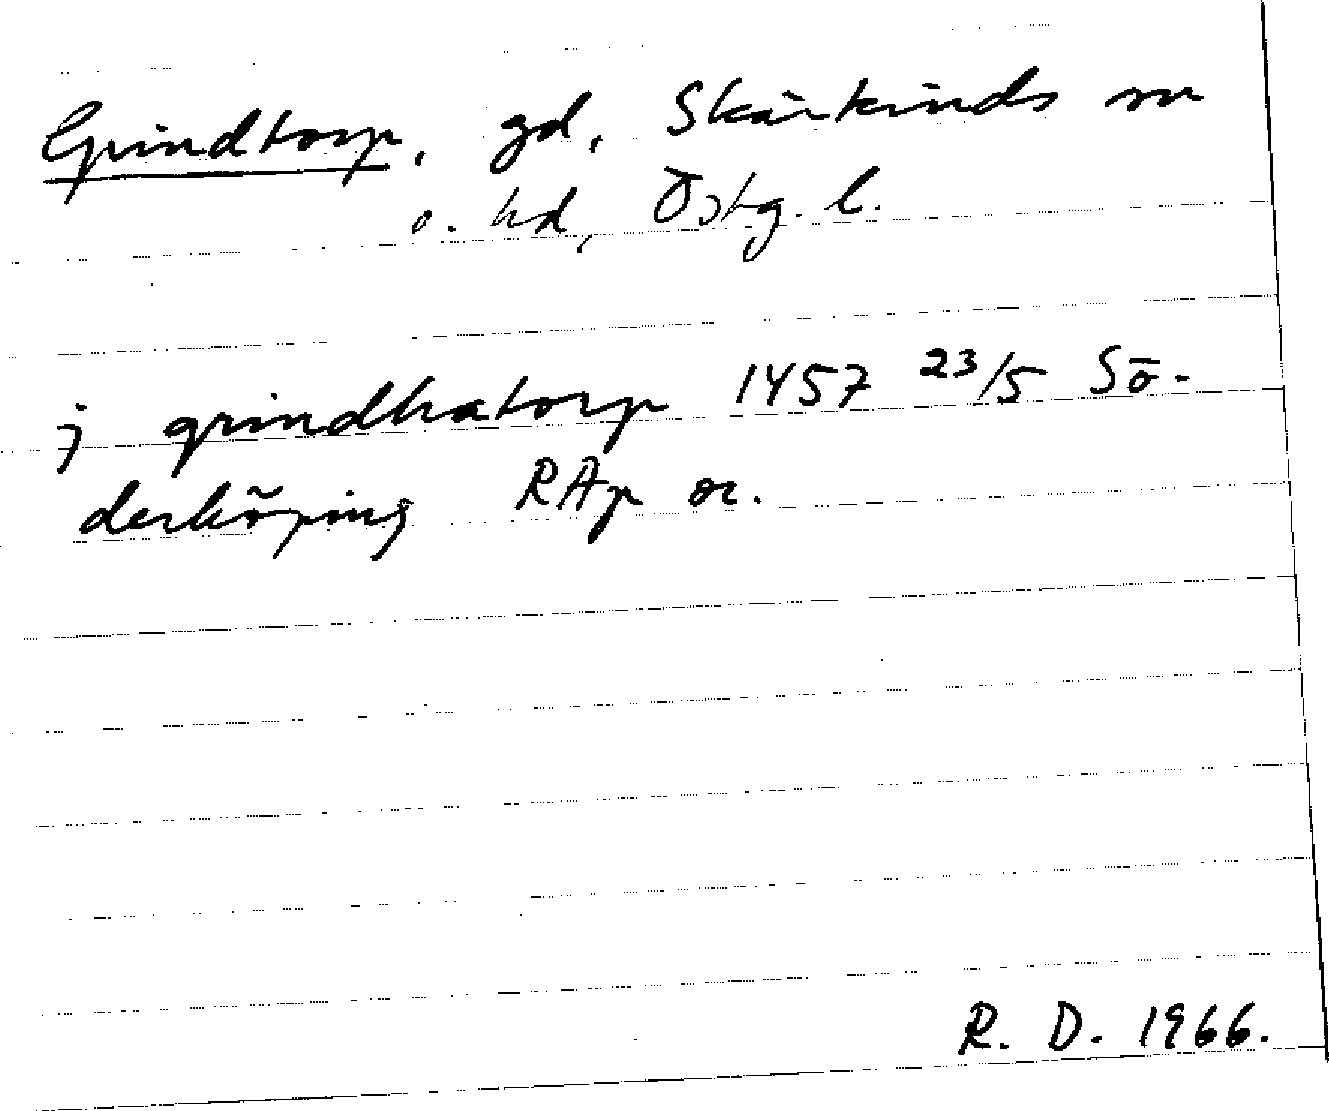 Grindtorp, gd, Skärkinds sn
o. hd, Östg. l.
j grindhatorp 1457 23/5 Sö-
derköping RAp or.
R. D. 1966.